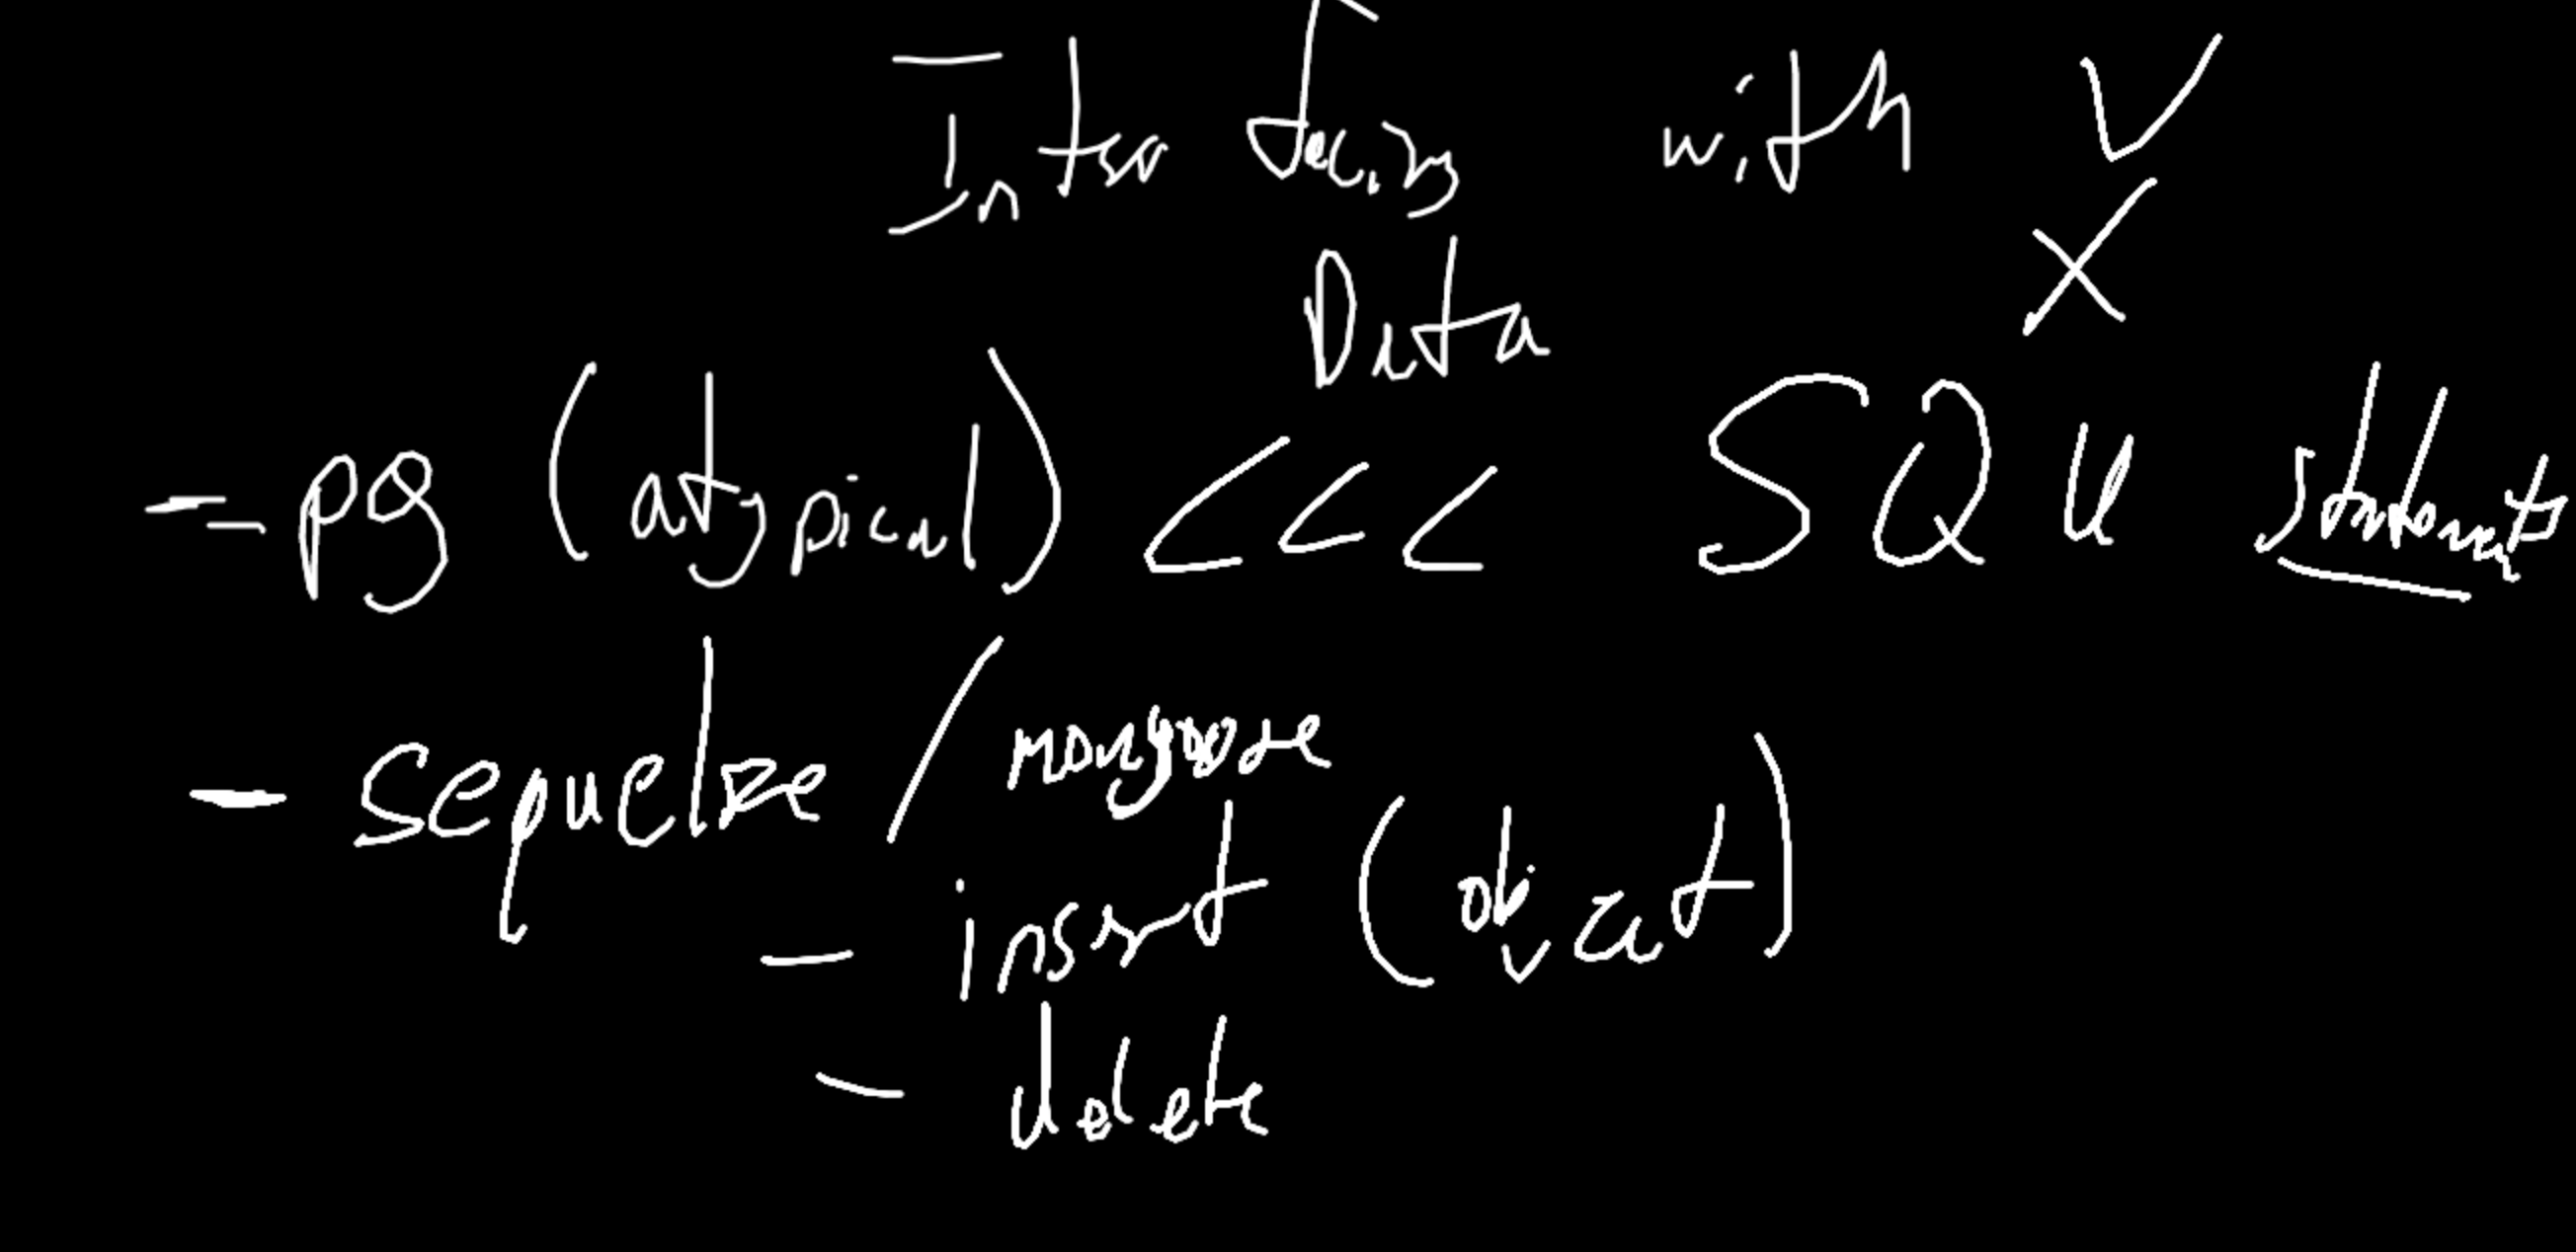 Interfacing with
Data
- pg (atypical) <<< SQL statements
- sequelize / mongoose
- insert (object)
- delete